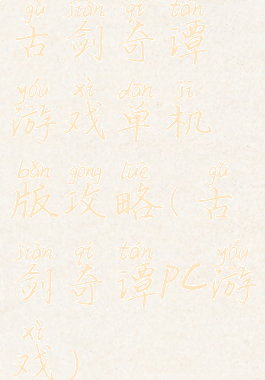 gǔ jiàn qí tán
古剑奇谭
yóu xì dān jī
游戏单机
bǎn gōng lüè gǔ
版攻略(古
jiàn qí tán yóu
剑奇谭PC游
xì
戏)